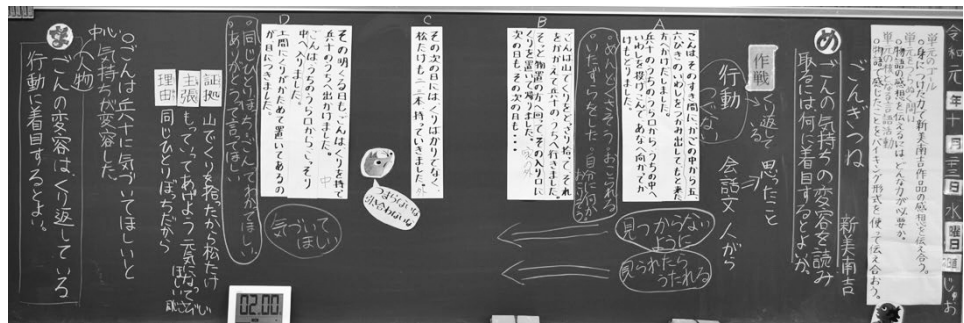 令和元年十月二十三日水曜日
単元のゴール
身につけた力で新美南吉作品の感想を伝え合う。
物語の感想を伝えるにはどんな力が必要か。
物語で感じたことをバイキング形式を使って伝え合おう。
ごんぎつね
新美南吉
め
ごんの気持ちの変容を読み
取るには何に着目するとよいか。
作戦
くり返して
いる
思ったこと
行動
つぶやき
会話文
人がら
A
ごんはそのすき間に、かごの中から五、
六ぴきのいわしをつかみ出してもと来た
方へかけだした。
兵十のうちのうら口から、うちの中へ
いわしを投げこんで、あなへ向かってか
けもどりました。
見つからない
ように
見られたら
うたれる
B
ごんは山でくりをどっさり拾って、それ
をかかえて兵十のうちへ行きました。
そっと物置の方へ回って、その入り口に
くりを置いて帰りました。
次の日も、その次の日も・・・
C
その次の日には、くりばかりでなく、
松たけも二、三本、持っていきました。
つまらないな
引き合わないな
D
その明くる日も、ごんはくりを持って
兵十のうちへ出かけました。
ごんはうちのうら口から、こっそり
中へ入りました。
土間にくりがかためて置いてあるの
が目につきました。
気づいて
ほしい
同じひとりぼっち、ごんってわかってほしい。
ありがとうって言ってほしい。
証拠
主張
理由
山でくりを拾ったから松たけ
もっってってあげよう
元気になって
ほしい
同じひとりぼっちだから
ごんは兵十に気づいてほしいと
気持ちが変容した。
中心
人物
ま
ごんの変容は、くり返している
行動に着目するとよい。
02:00